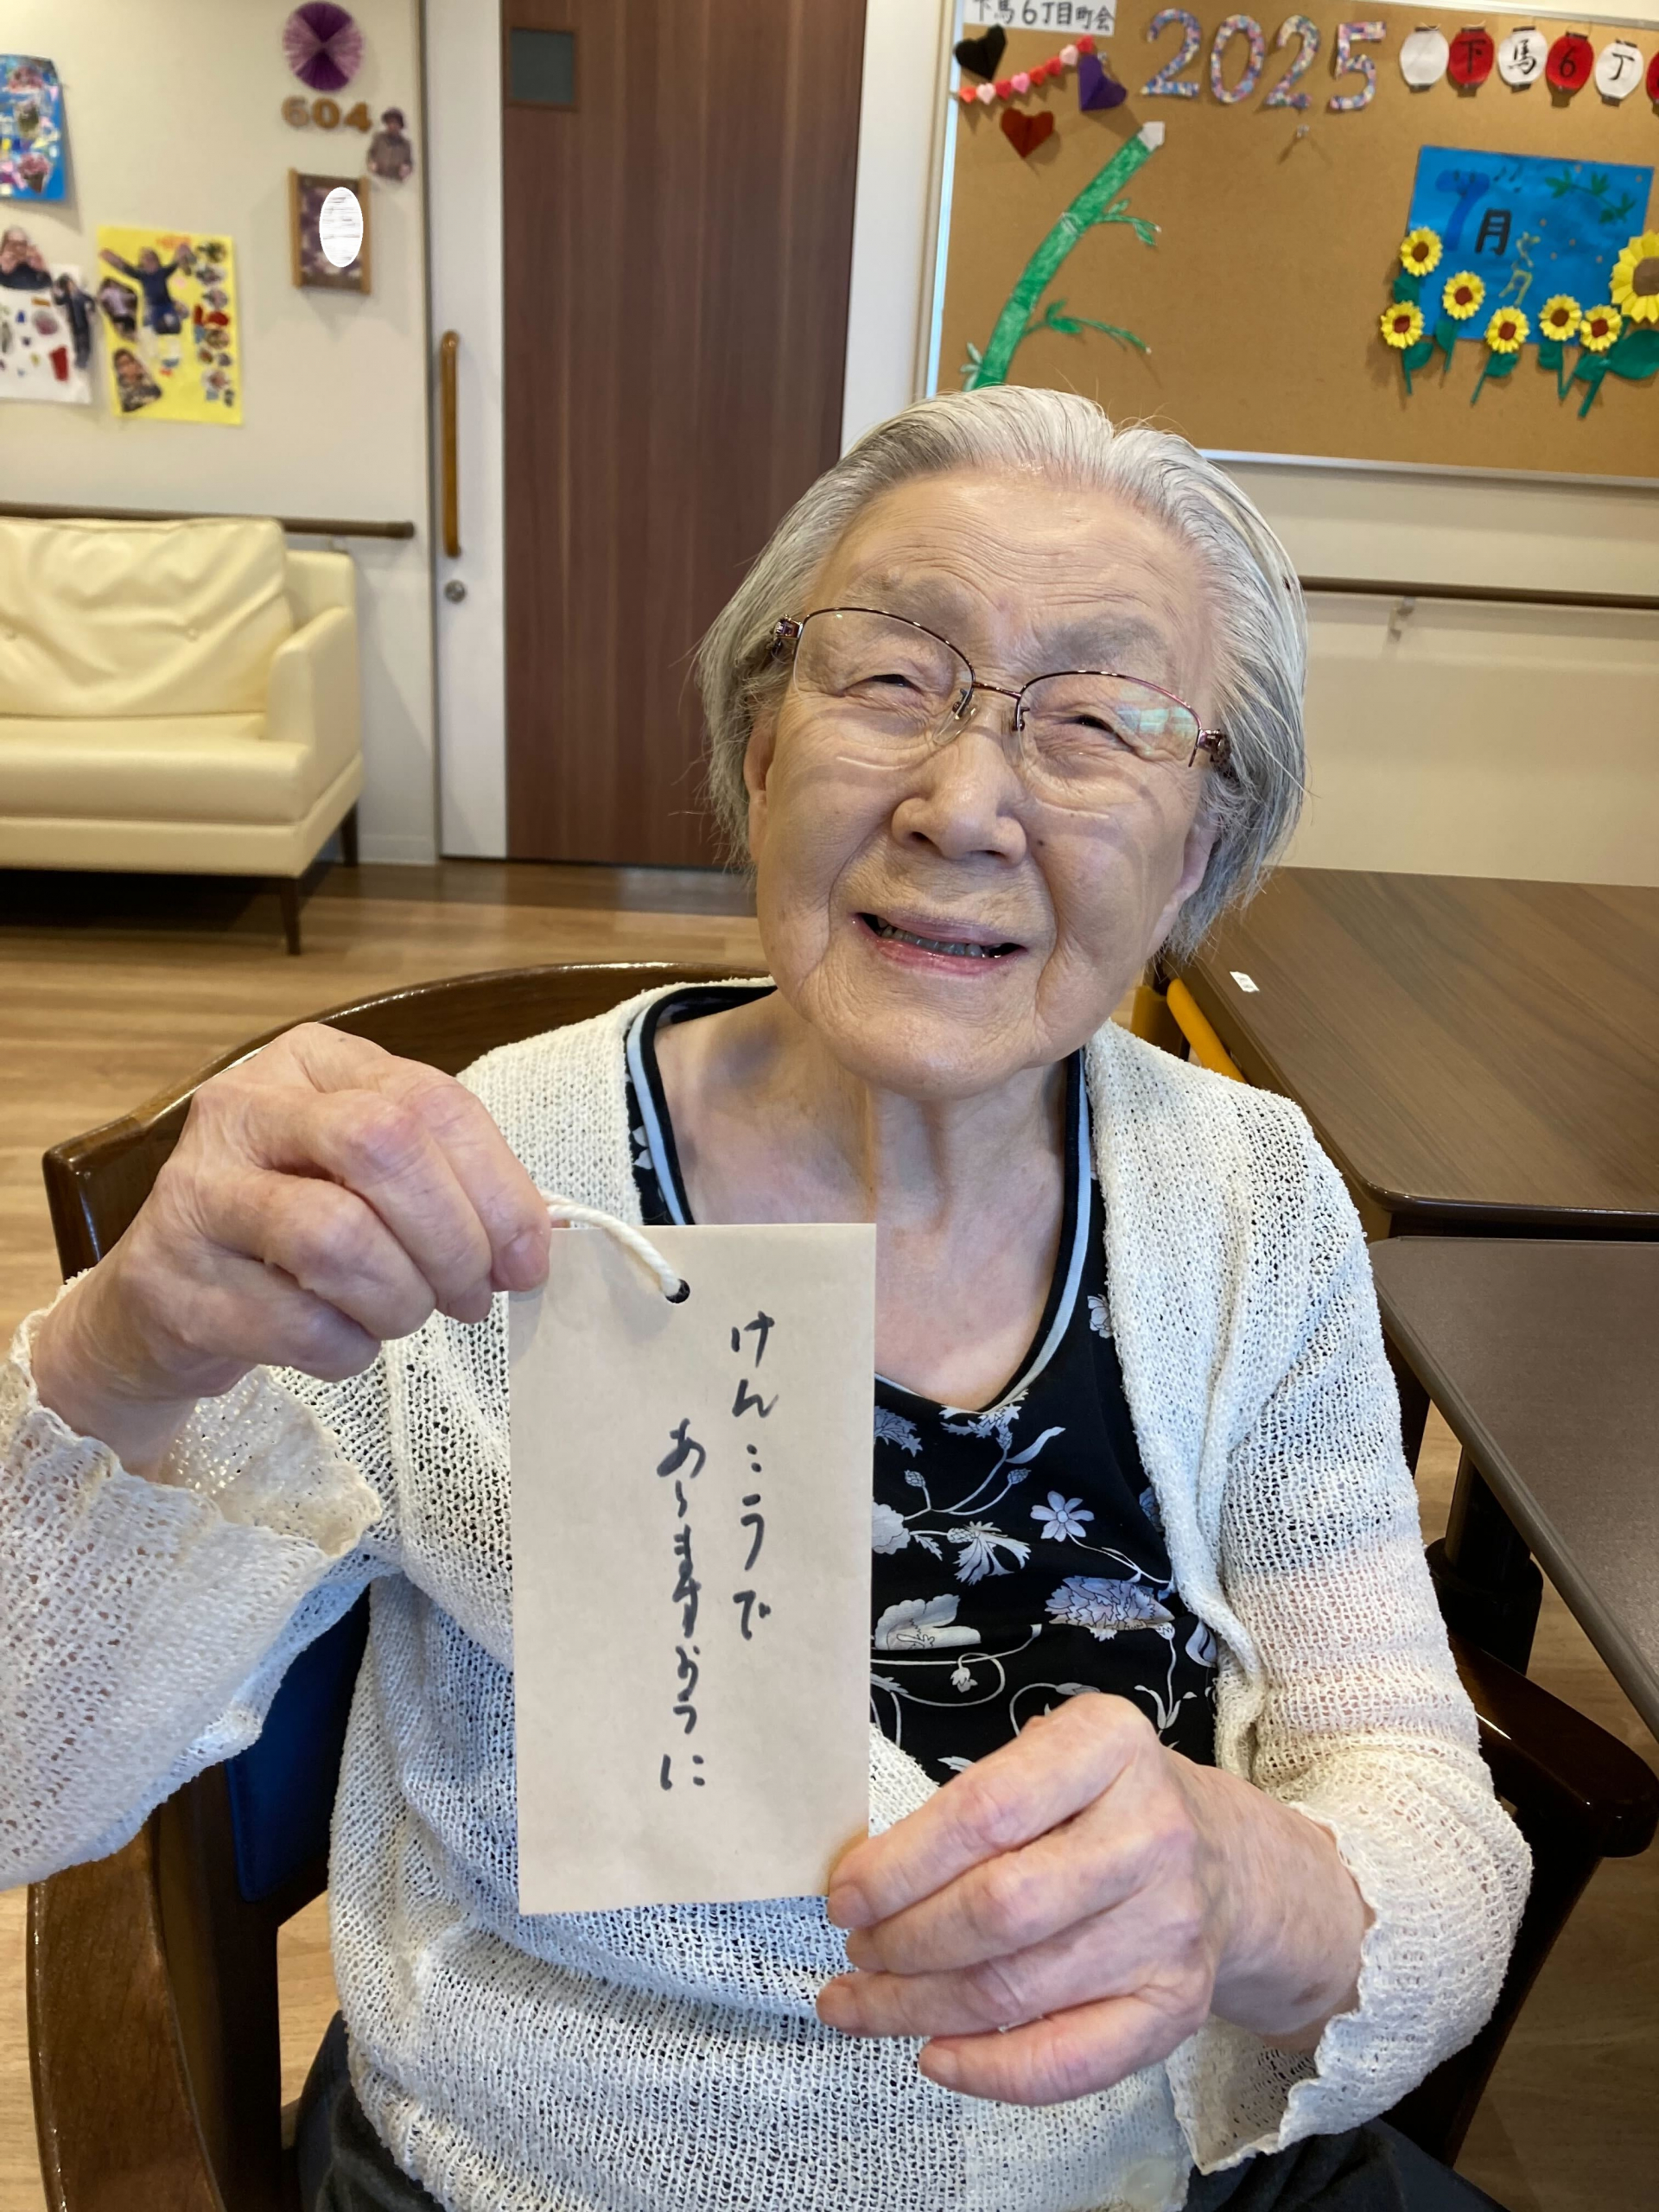 下馬6丁目町会
2025
下馬6丁
604
7月
けんこうで
あいますように